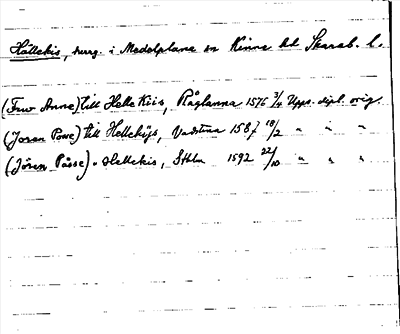 Hällekis, herrg. i Medelplana sn Kinne hd Skarab. l.
(Fru Anne) till Helle Kiis, Råglanna 1576 3/4 Upps. dipl. orig.
(Joran Posse) till Hellekijs, Vadstena 1587 18/2 " " "
(Jören Påsse) " Hellekis, Sthlm 1592 22/10 " " "